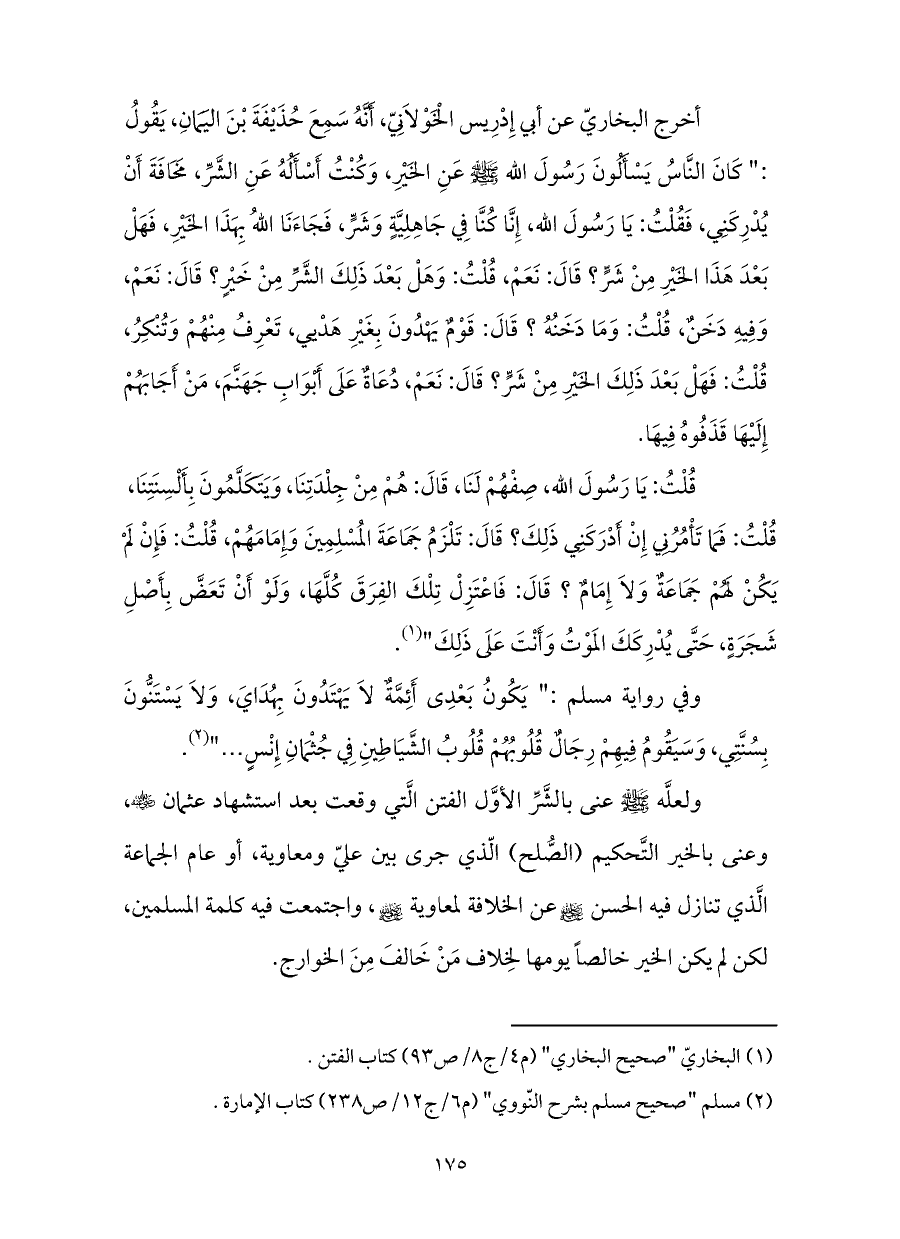 أخرج البخاريّ عن أبي إِدْرِيس الْخَوْلاَنِيّ، أَنَّهُ سَمِعَ حُذَيْفَةَ بْنَ اليَمَانِ، يَقُولُ
:" كَانَ النَّاسُ يَسْأَلُونَ رَسُولَ الله ﷺ عَنِ الخَيْرِ، وَكُنْتُ أَسْأَلُهُ عَنِ الشَّرِّ، مَخَافَةَ أَنْ
يُدْرِكَنِي، فَقُلْتُ: يَا رَسُولَ الله، إِنَّا كُنَّا فِي جَاهِلِيَّةٍ وَشَرٍّ، فَجَاءَنَا اللهُ بِهَذَا الخَيْرِ، فَهَلْ
بَعْدَ هَذَا الخَيْرِ مِنْ شَرٍّ؟ قَالَ: نَعَمْ، قُلْتُ: وَهَلْ بَعْدَ ذَلِكَ الشَّرِّ مِنْ خَيْرٍ؟ قَالَ: نَعَمْ،
وَفِيهِ دَخَنٌ، قُلْتُ: وَمَا دَخَنُهُ ؟ قَالَ: قَوْمٌ يَهْدُونَ بِغَيْرِ هَدْيِي، تَعْرِفُ مِنْهُمْ وَتُنْكِرُ،
قُلْتُ: فَهَلْ بَعْدَ ذَلِكَ الخَيْرِ مِنْ شَرٍّ؟ قَالَ: نَعَمْ، دُعَاةٌ عَلَى أَبْوَابِ جَهَنَّمَ، مَنْ أَجَابَهُمْ
إِلَيْهَا قَذَفُوهُ فِيهَا.
قُلْتُ: يَا رَسُولَ الله، صِفْهُمْ لَنَا، قَالَ: هُمْ مِنْ جِلْدَتِنَا، وَيَتَكَلَّمُونَ بِأَلْسِنَتِنَا،
قُلْتُ: فَمَا تَأْمُرُنِي إِنْ أَدْرَكَنِي ذَلِكَ؟ قَالَ: تَلْزَمُ جَمَاعَةَ المُسْلِمِينَ وَإِمَامَهُمْ، قُلْتُ: فَإِنْ لَمْ
يَكُنْ لَهُمْ جَمَاعَةٌ وَلاَ إِمَامٌ ؟ قَالَ: فَاعْتَزِلْ تِلْكَ الفِرَقَ كُلَّهَا، وَلَوْ أَنْ تَعَضَّ بِأَصْلِ
شَجَرَةٍ، حَتَّى يُدْرِكَكَ المَوْتُ وَأَنْتَ عَلَى ذَلِكَ"(١).
وفي رواية مسلم :" يَكُونُ بَعْدِى أَئِمَّةٌ لاَ يَهْتَدُونَ بِهُدَايَ، وَلاَ يَسْتَنُّونَ
بِسُنَّتِي، وَسَيَقُومُ فِيهِمْ رِجَالٌ قُلُوبُهُمْ قُلُوبُ الشَّيَاطِينِ فِي جُثْمَانِ إِنْسٍ..."(٢).
ولعلَّه ﷺ عنى بالشَّرِّ الأوَّل الفتن الَّتي وقعت بعد استشهاد عثمان ﵁،
وعنى بالخير التَّحكيم (الصُّلح) الّذي جرى بين عليّ ومعاوية، أو عام الجماعة
الَّذي تنازل فيه الحسن ﵁ عن الخلافة لمعاوية ﵁، واجتمعت فيه كلمة المسلمين،
لكن لم يكن الخير خالصاً يومها لِخلاف مَنْ خَالفَ مِنَ الخوارج.
(١) البخاريّ "صحيح البخاري" (م٤/ ج٨/ ص٩٣) كتاب الفتن .
(٢) مسلم "صحيح مسلم بشرح النّووي" (م٦/ ج١٢/ ص٢٣٨) كتاب الإمارة .
١٧٥